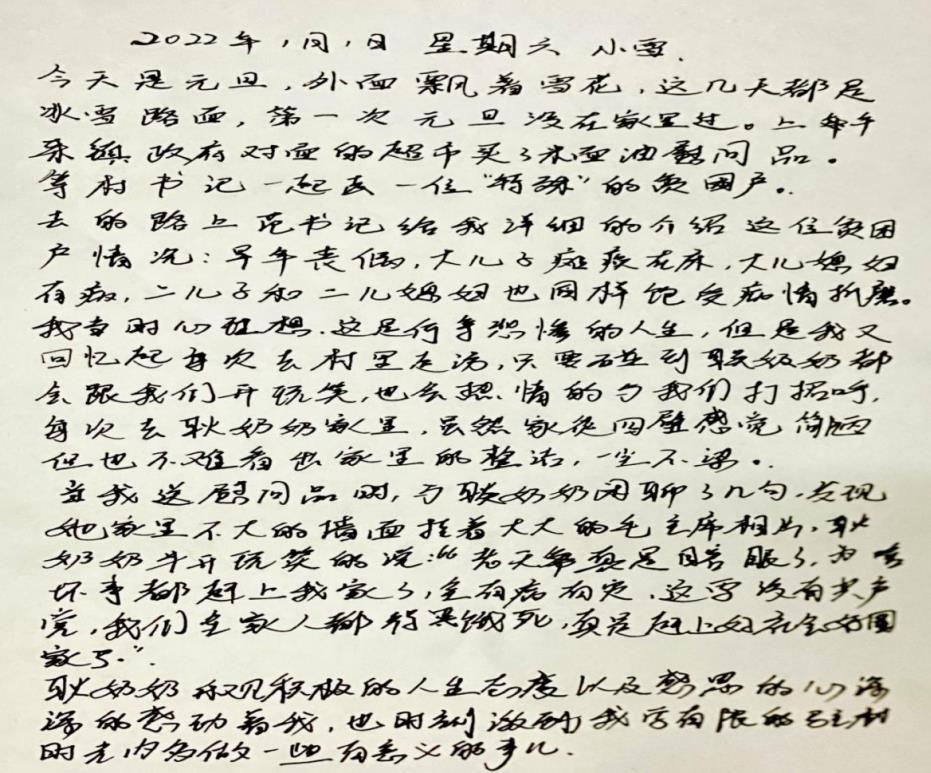 2022年1月1日 星期六 小雪.
今天是元旦，外面飘着雪花，这几天都是
冰雪路面，第一次元旦没在家里过。上午
来镇政府对面的超市买了米面油慰问品。
等村书记一起去一位“特殊”的贫困户。
去的路上范书记给我详细的介绍这位贫困
户情况：早年丧偶，大儿子瘫痪在床，大儿媳妇
有病，二儿子和二儿媳妇也同样饱受病情折磨。
我当时心里想，这是何等悲惨的人生，但是我又
回忆起每次去村里走访，只要碰到耿奶奶都
会跟我们开玩笑，也会热情的与我们打招呼，
每次去耿奶奶家里，虽然家徒四壁感觉简陋
但也不难看出家里的整洁，一尘不染。
当我送慰问品时，与耿奶奶闲聊了几句，发现
她家里不大的墙面挂着大大的毛主席相片，耿
奶奶半开玩笑的说：“老天爷真是瞎眼了，为啥
坏事都赶上我家了，全有病有灾，这要没有共产
党，我们全家人都得饿死，真是赶上好社会好国
家了.”.
耿奶奶积极的人生态度以及感恩的心深
深的感动着我，也时刻激励我要在有限的驻村
时光内多做一些有意义的事儿.